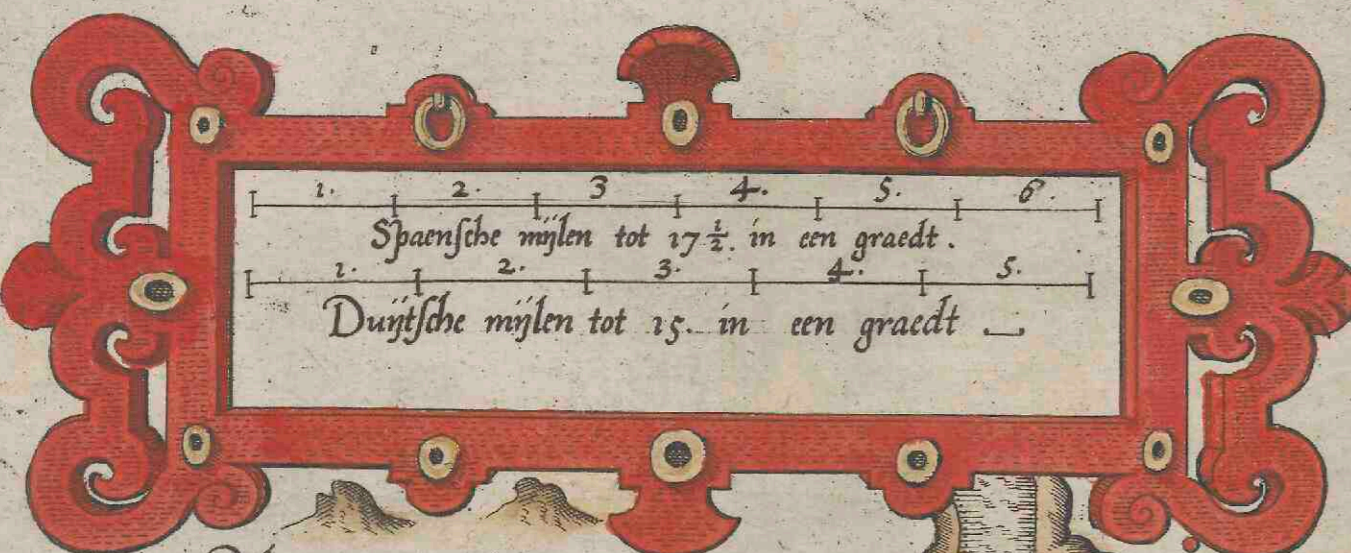 1. 2. 3 4. 5. 6.
Spaenſche mijlen tot 17 1/2. in een graedt.
1. 2. 3. 4. 5.
Duijtſche mijlen tot 15. in een graedt